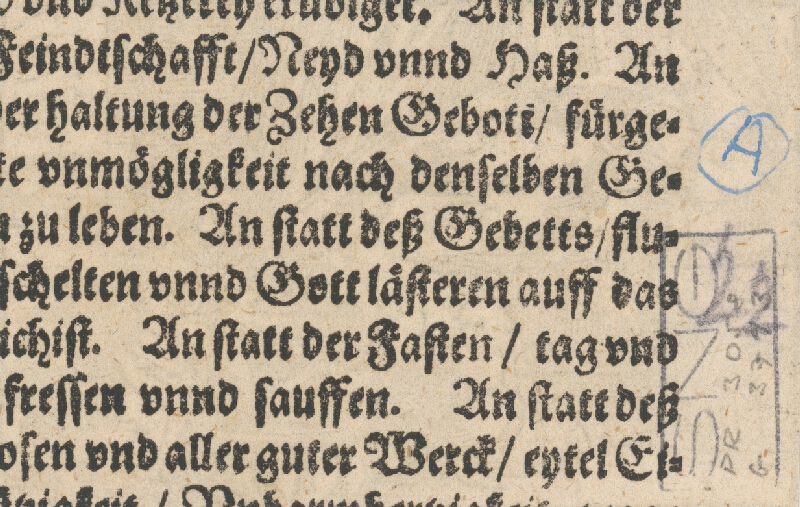 vnd Ketzerey erlediget. An statt der
Feindtschafft/Neyd vnnd Haß. An
der haltung der Zehen Gebott/ fürge-
te vnmögligkeit nach denselben Ge-
zu leben. An statt deß Gebetts/flu-
schelten vnnd Gott lästeren auff das
ichist. An statt der Fasten / tag vnd
fressen vnnd sauffen. An statt deß
osen vnd aller guter Werck/ eytel Ei-
A